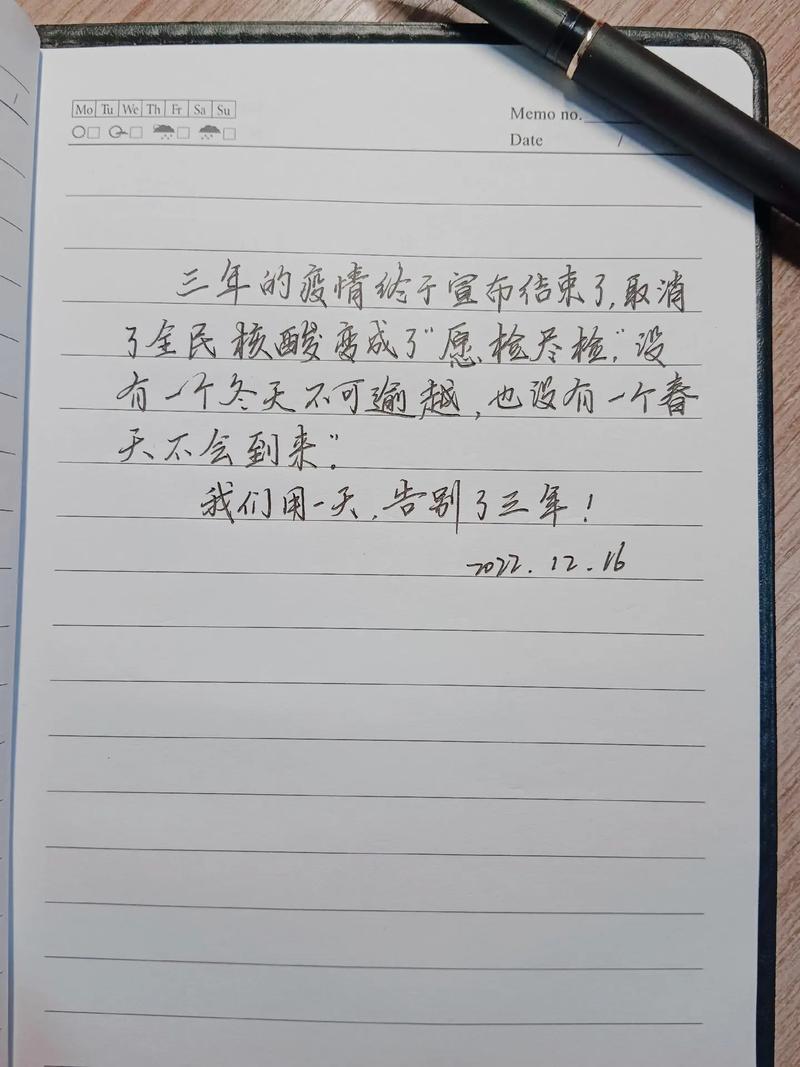 Mo Tu We Th Fr Sa Su
Memo no.
Date /
三年的疫情终于宣布结束了,取消
了全民核酸变成了"愿检尽检",没
有一个冬天不可逾越,也没有一个春
天不会到来"。
我们用一天,告别了三年!
2022.12.16